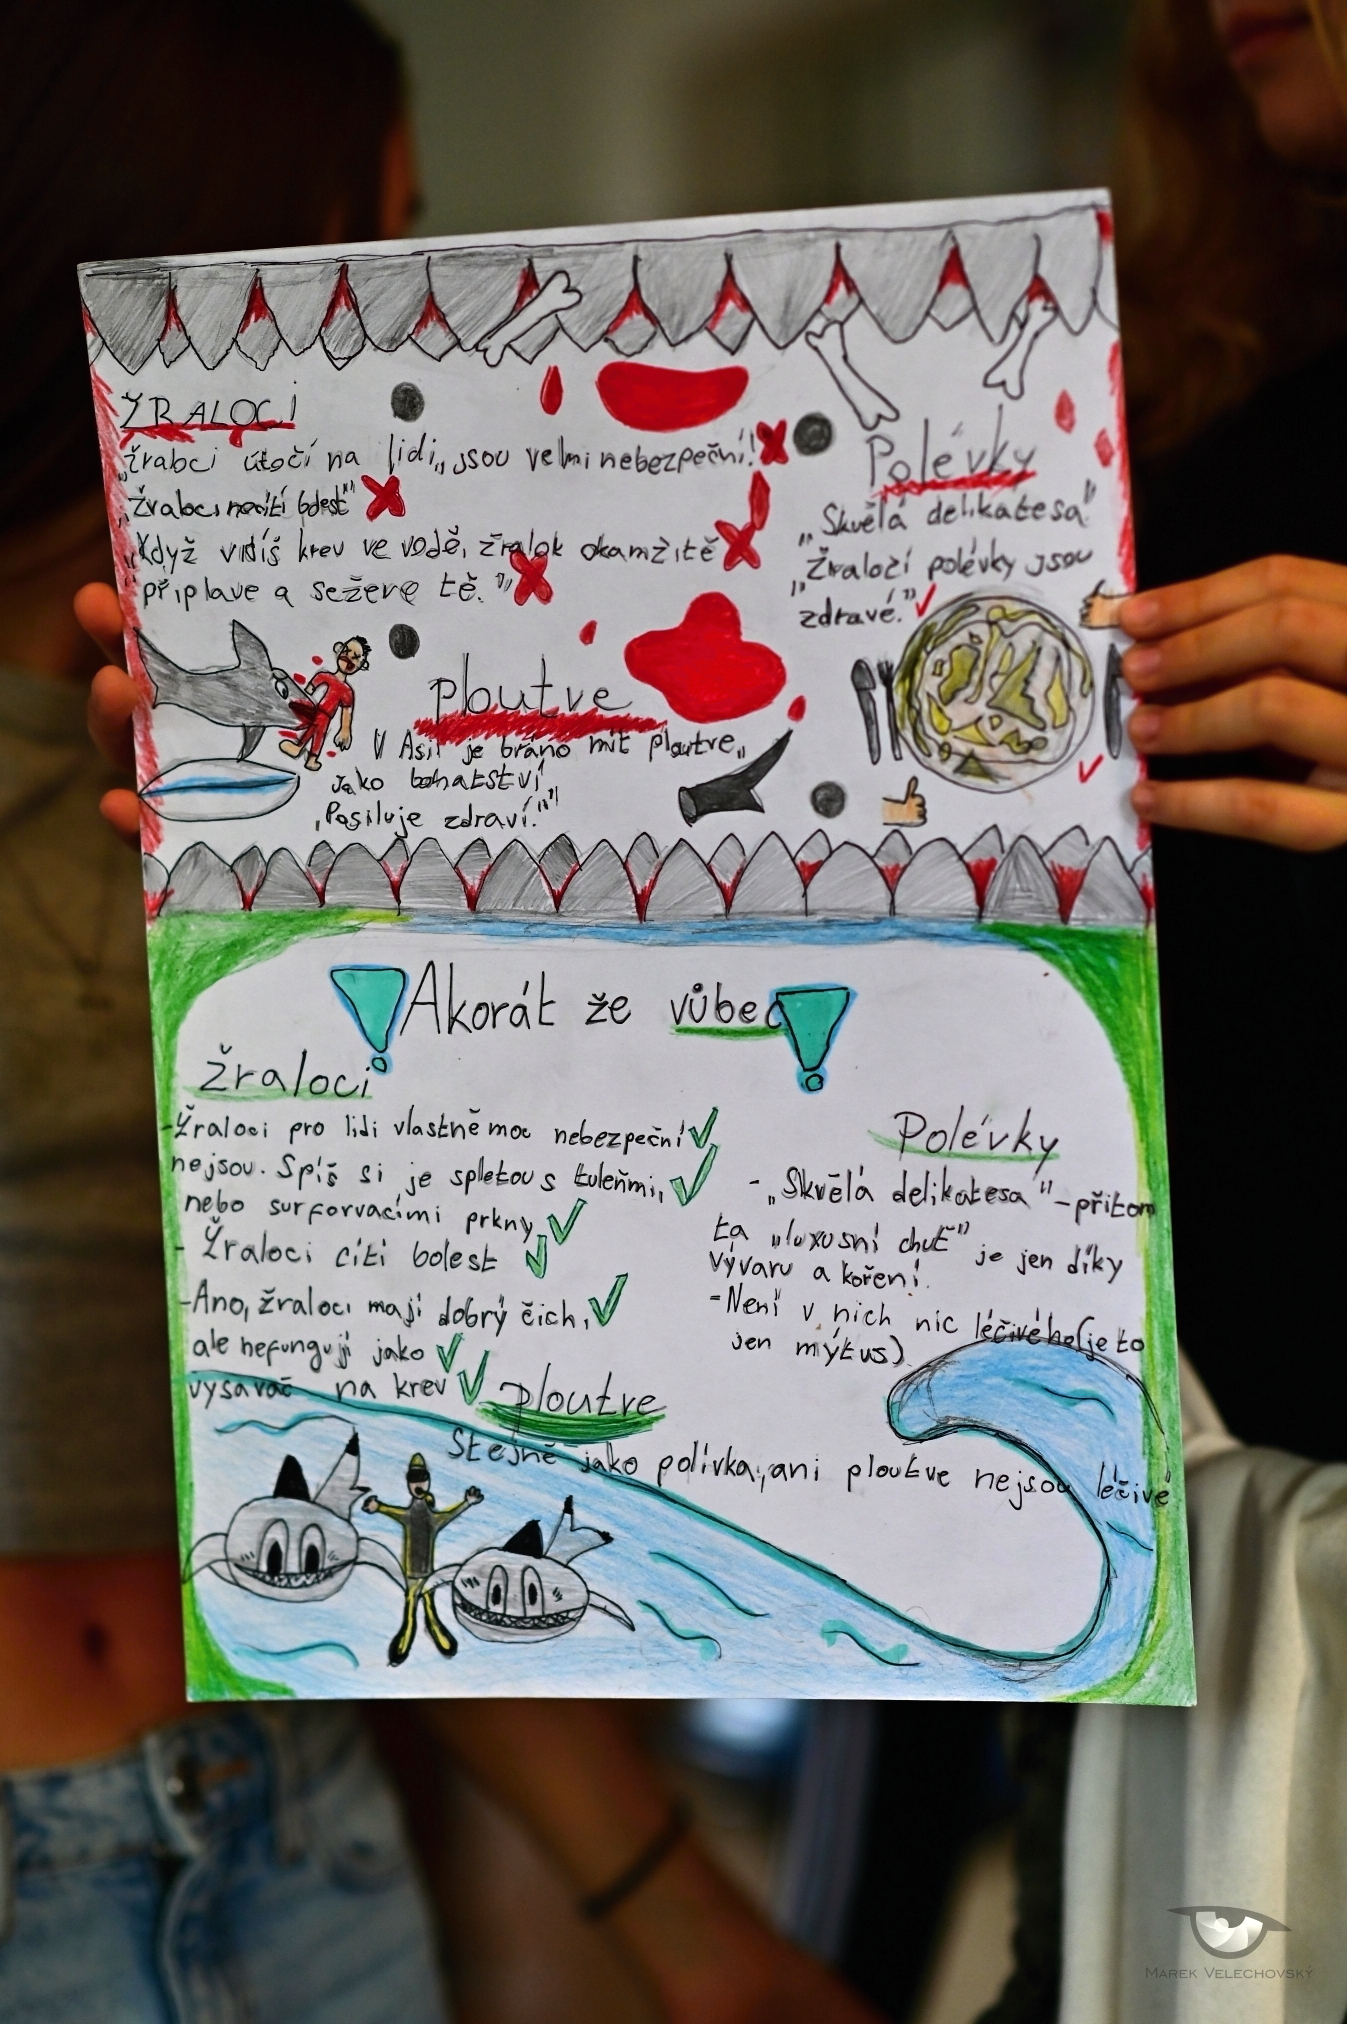 ŽRALOCI
„Žraloci útočí na lidi„ jsou velmi nebezpeční!
„Žraloci necítí bolest"
„Když vidíš krev ve vodě, žralok okamžitě
připlave a sežere tě."
Polévky
„Skvělá delikatesa"
„Žraločí polévky jsou
zdravé."
ploutve
V Asii je bráno mít ploutve„
jako bohatství
„Posiluje zdraví."
Akorát že vůbec
Žraloci
-Žraloci pro lidi vlastně moc nebezpeční
nejsou. Spíš si je spletou s tuleňmi,
nebo surfovacími prkny,
- Žraloci cítí bolest
-Ano, žraloci mají dobrý čich,
ale nefungují jako
vysavač na krev
Polévky
- „Skvělá delikatesa" - přitom
ta „luxusní chuť" je jen díky
vývaru a koření.
-Není v nich nic léčivého(je to
jen mýtus)
ploutve
Stejně jako polívka, ani ploutve nejsou léčivé
MAREK VELECHOVSKÝ